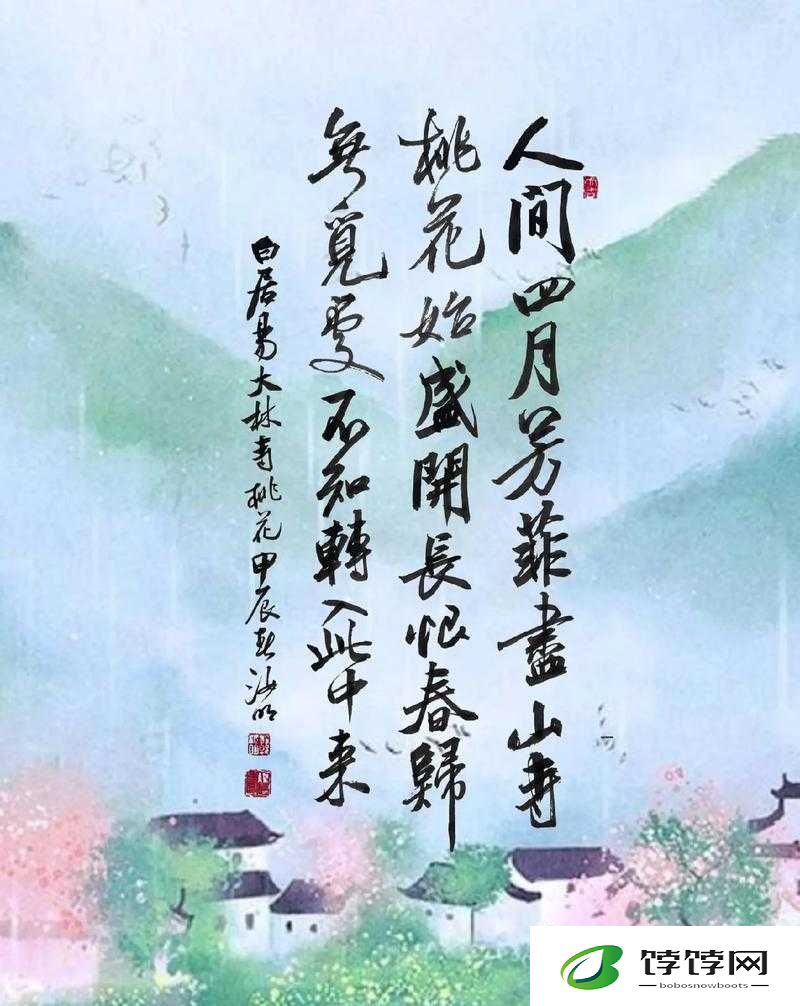 人间四月芳菲盡山寺
桃花始盛開長恨春歸
無覓處不知轉入此中来
白居易大林寺桃花甲辰春海明
饽饽网
bobosnowboots